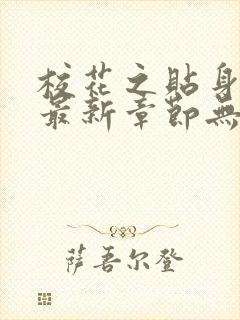 校花之貼身
最新章節無
萨吾尔登